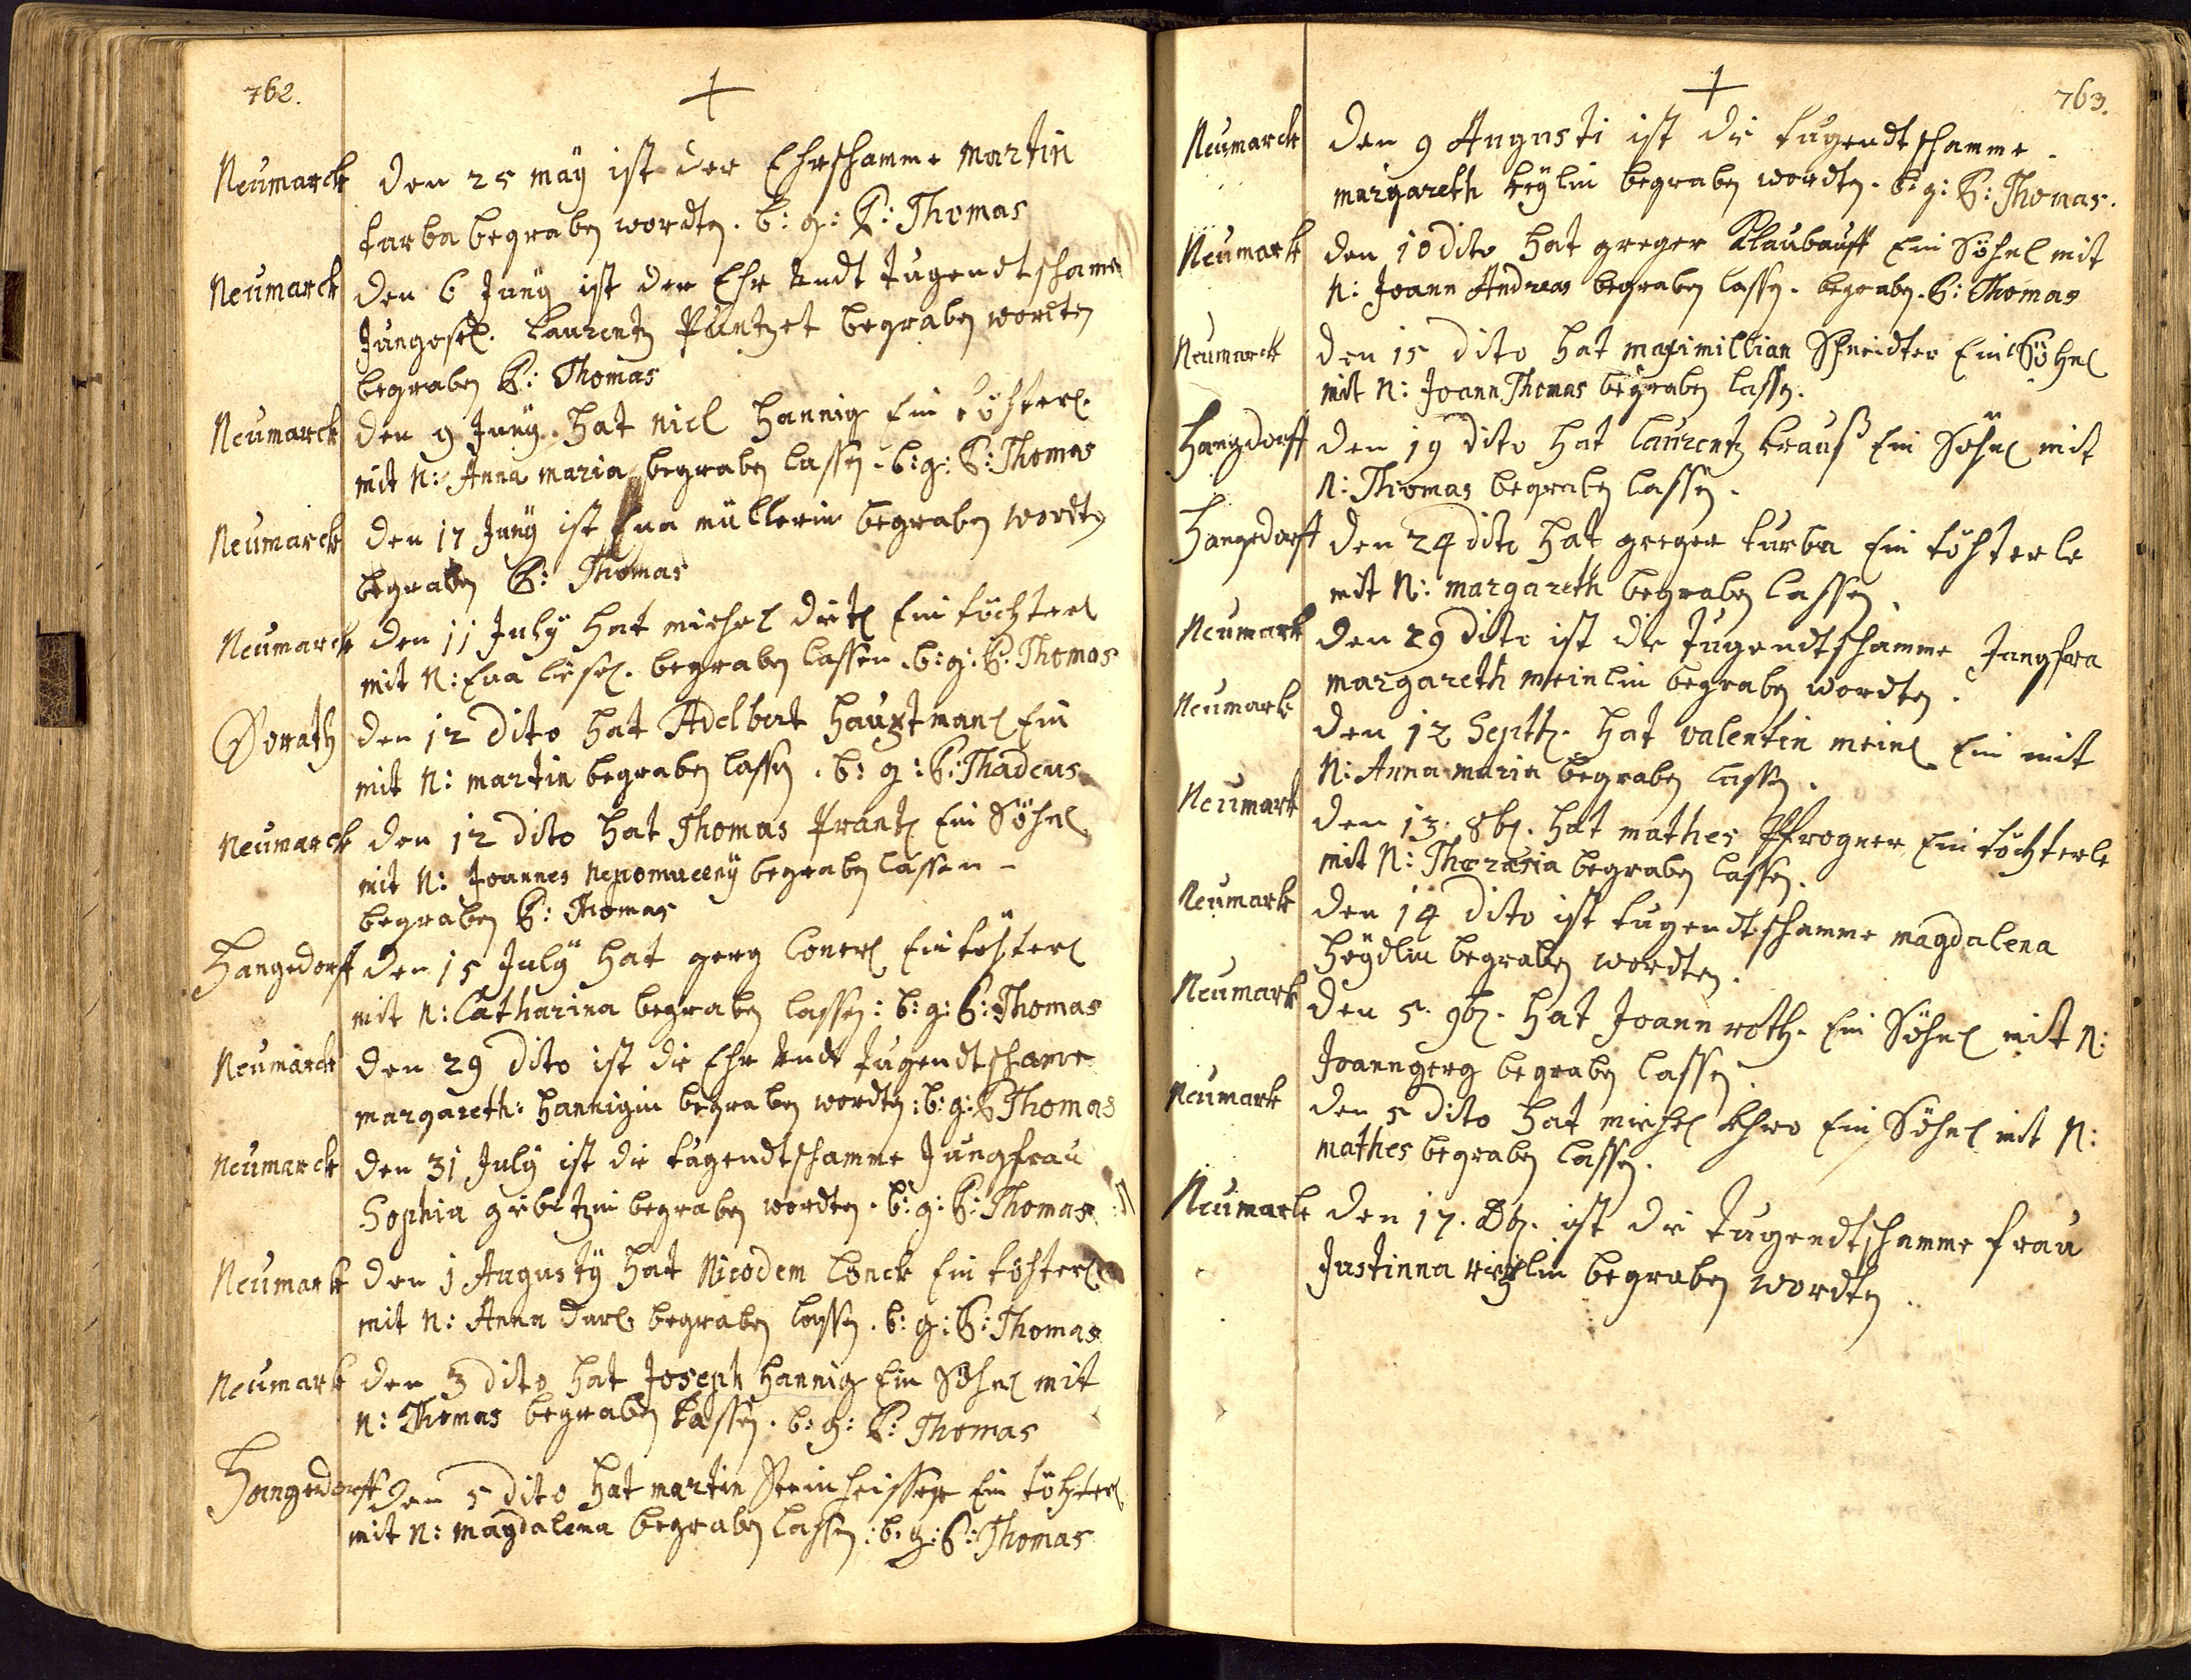 762.
Neumarck den 25 may ist der Ehrschamme Martin
turba begraben wordten. b: g: P: Thomas
Neumarck den 6 Juny ist der Ehr Undt Tugendtschame
Junggesel. Laurentz begraben wordten
begraben P: Thomas
Neumarck den 9 Juny. hat nicl hannig Ein töchterl
mit N: Anna maria begraben lassen. b: g: P: Thomas
Neumarck den 17 Juny ist Eua müllerin begraben wordten
begraben P: Thomas
Neumarck den 11 July hat michel Ein töchterl
mit N: Eua liesel. begraben lassen. b: g: P. Thomas
den 12 dito hat Adelbert hauptmanl Ein
mit N: martin begraben lassen. b: g: P: Thadeus
Neumarck den 12 dito hat Thomas Frantz Ein Söhnl
mit N: Joannes Nepomuceny begraben lassen -
begraben P: Thomas
Hangsdorff den 15 July hat gerg Ein töchterl
mit N: Catharina begraben lassen: b: g: P: Thomas
Neumarck den 29 dito ist die Ehr Undt Tugendtschame
margareth: hannigin begraben wordten: b: g: P Thomas
Neumarck den 31 July ist die tugendtschamme Jungfrau
Sophia begraben wordten. b: g: P: Thomas
Neumark den 1 Augusty hat Nicodem Lonck Ein töchterl
mit N: Anna begraben lassen. b: g: P: Thomas
Neumark den 3 dito hat Joseph hannig Ein Söhnl mit
N: Thomas begraben lassen. b: g: P: Thomas
Hangsdorff den 5 dito hat martin Ein töchterl
mit N: magdalena begraben lassen: b: g: P: Thomas
763.
Neumarck den 9 Augusti ist die tugendtschamme
margareth begraben wordten. b: g: P: Thomas.
Neumark den 10 dito hat greger Klaubauff Ein Söhnl mit
N: Joann Andreas begraben lassen. begraben. P: Thomas
Neumarck den 15 dito hat maximillian Schneidter Ein Söhnl
mit N: Joann Thomas begraben lassen.
Hangsdorff den 19 dito hat laurentz krauß Ein Söhnl mit
N: Thomas begraben lassen.
Hangsdorff den 24 dito hat greger turba Ein töchterle
mit N: margareth begraben lassen.
Neumark den 29 dito ist die Tugendtschamme Jungfra
margareth meinlin begraben wordten.
Neumark den 12 Septb. hat valentin meinl Ein mit
N: Anna maria begraben lassen.
Neumark den 13. 8b. hat mathes Pfrogner Ein töchterle
mit N: Therasia begraben lassen.
Neumark den 14 dito ist tugendtschamme magdalena
begraben wordten.
Neumark den 5. 9b. hat Joann roth. Ein Söhnl mit N:
Joanngerg begraben lassen
Neumark den 5 dito hat michel Ein Söhnl mit N:
mathes begraben lassen.
Neumark den 17. Xb. ist die Tugendtschamme frau
Justinna begraben wordten.